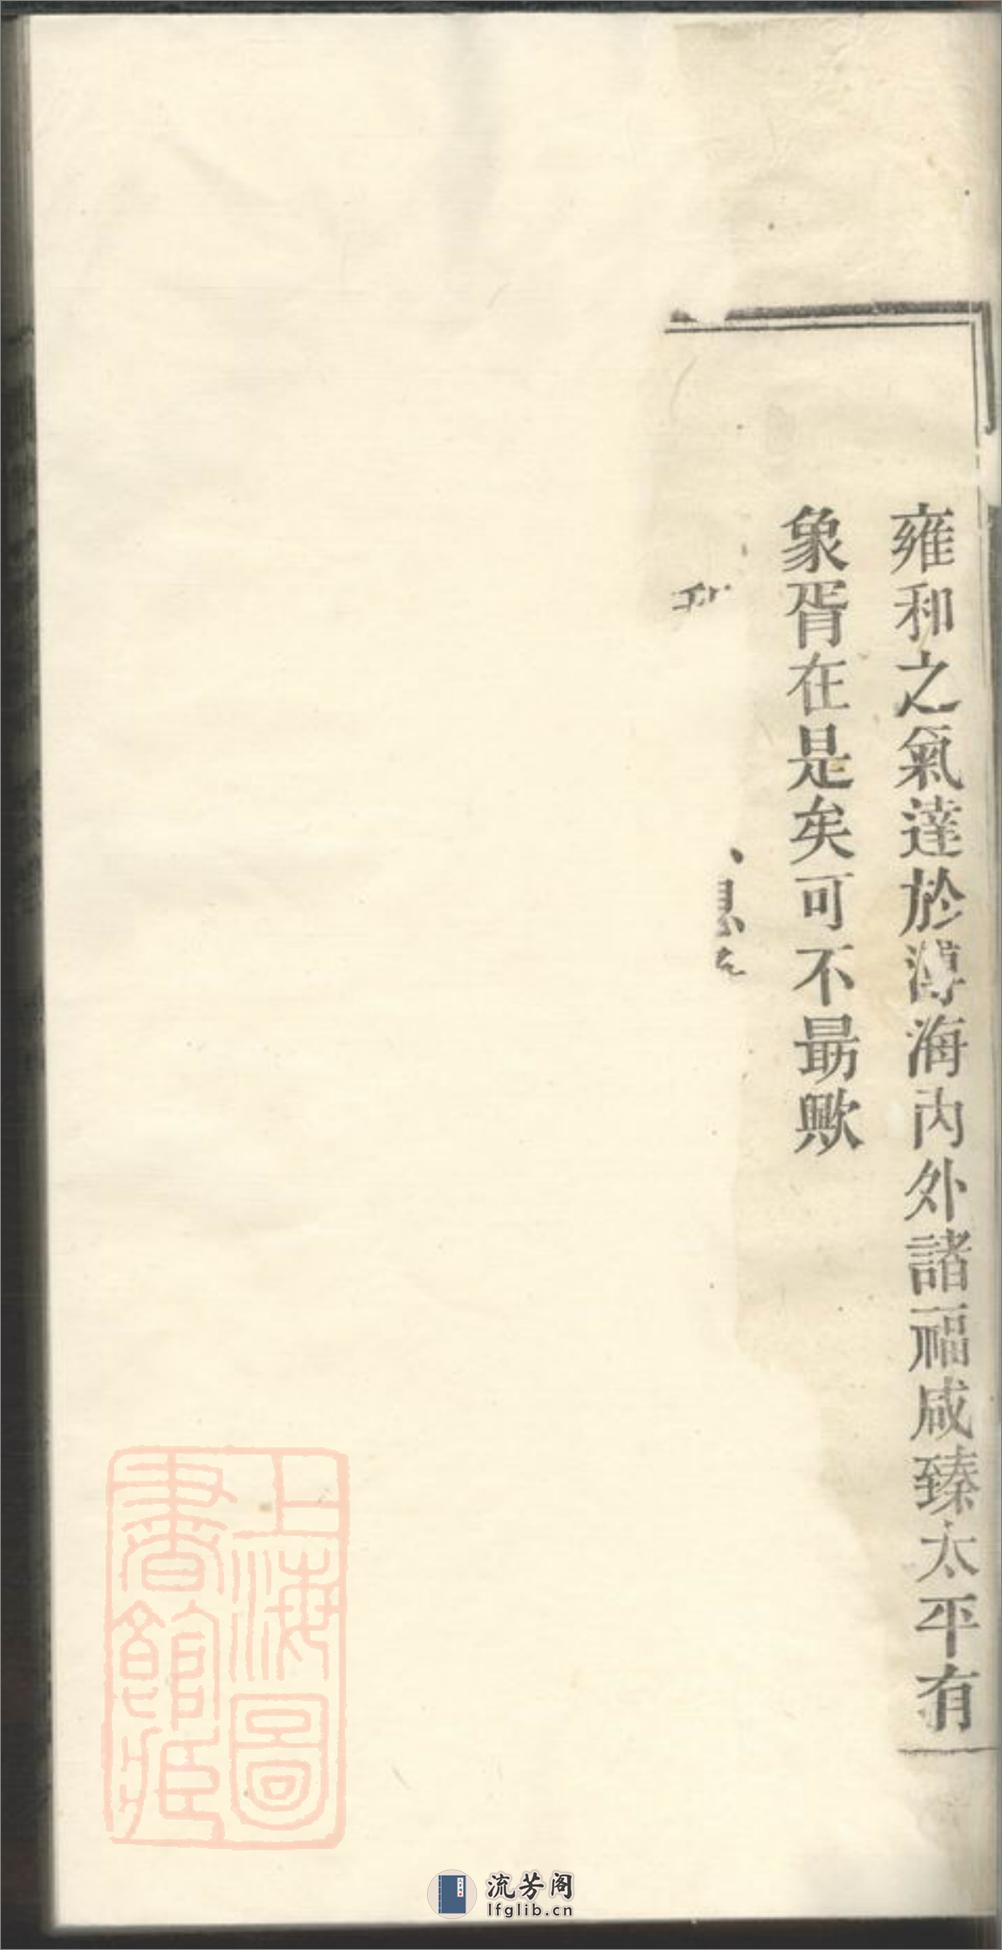 雍和之氣達於薄海內外諸福咸臻太平有
象胥在是矣可不勗歟
上海圖
書館藏
流芳阁
lfglib.cn